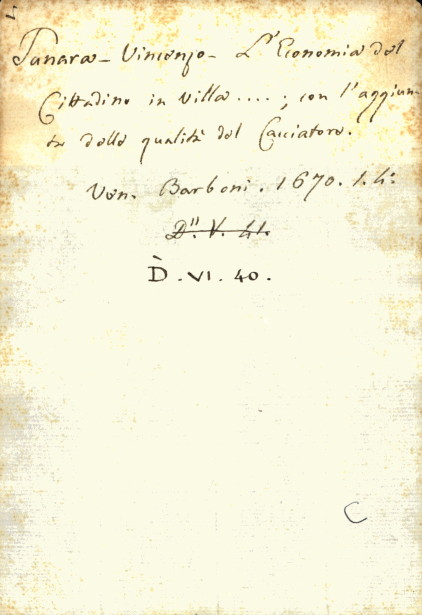 Tanara - Vincenzo - L'Economia del
Cittadino in Villa....; con l'aggiun-
ta delle qualità del Cacciatore.
Ven. Barboni. 1670. 1. 4.º
D". V. 41.
D̀. VI. 40.
C